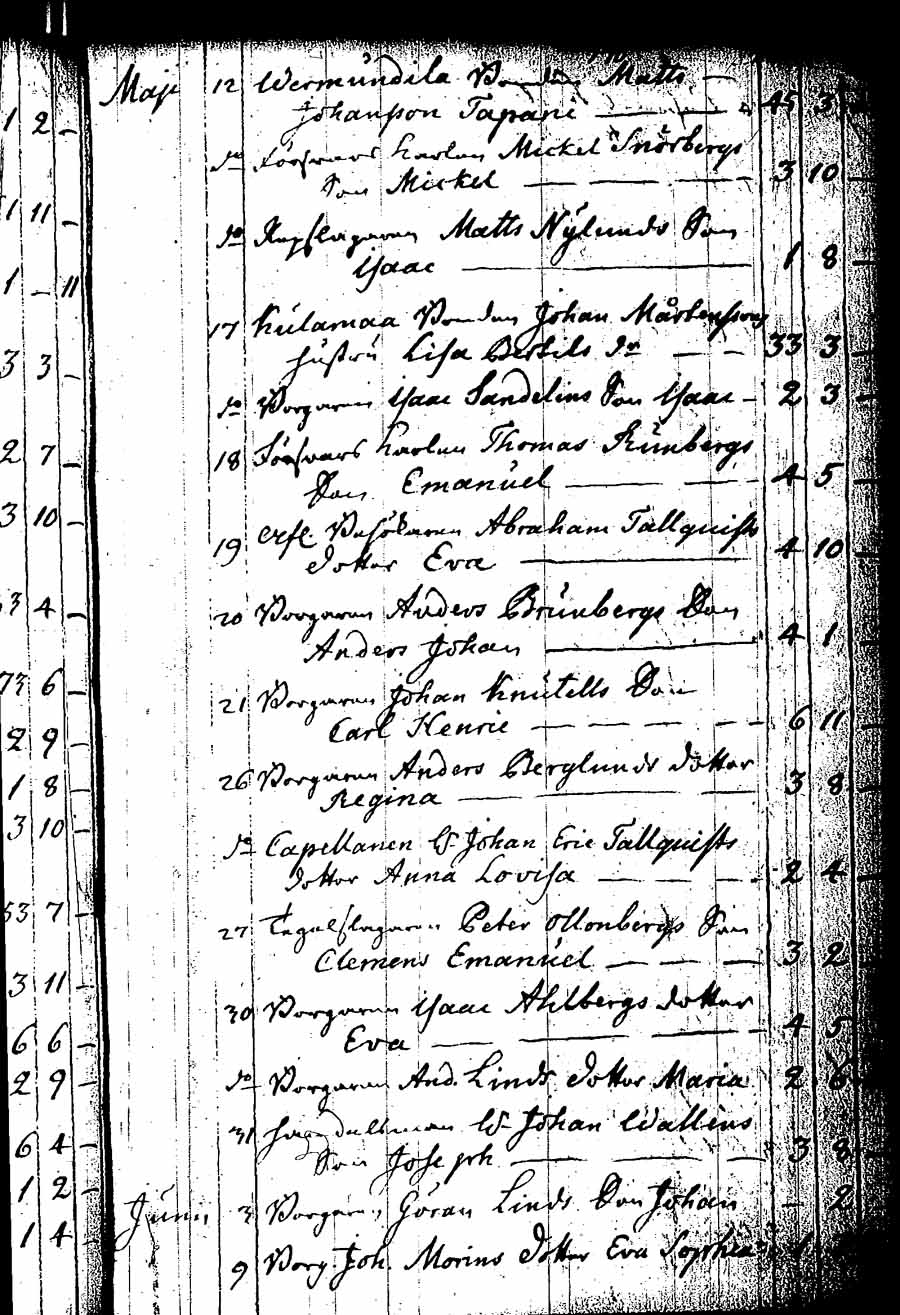 1 2 -
1 11 -
1 - 11
3 3 -
2 7 -
3 10 -
3 4 -
73 6 -
2 9 -
1 8 -
3 10 -
53 7 -
3 11 -
6 6 -
2 9 -
6 4 -
1 2 -
1 4 -
Maji 12 Wermundila Bonden Matts -
Johansson Tapani 45 3 -
do Försvars Karlen Mickel Snörbergs
Son Mickel 3 10 -
do Kopslagaren Matts Nylunds Son
Isaac 1 8 -
17 Kulamaa Bonden Johan Mårtenssons
hustru Lisa Bertils dr 33 3 -
do Borgaren Isaac Sandelins Son Isaac - 2 3 -
18 Försvars Karlen Thomas Runbergs
Son Emanuel 4 5 -
19 Besökaren Abraham Tallquists
dotter Eva 4 10 -
20 Borgaren Anders Brunbergs Son
Anders Johan 4 1 -
21 Borgaren Johan Knutells Son
Carl Henric 6 11 -
26 Borgaren Anders Berglunds dotter
Regina 3 8 -
do Capellanen H. Johan Eric Tallquists
dotter Anna Lovisa 2 4 -
27 Tegelslagaren Peter Ollonbergs Son
Clemens Emanuel 3 2 -
30 Borgaren Isaac Ahlbergs dotter
Eva 4 5
do Borgaren And. Linds dotter Maria 2 6
31 Handelsman H. Johan Wallins
Son Joseph 3 8
Junii 3 Borgaren Göran Linds Son Johan - 2
9 Borg. Joh. Morins dotter Eva Sophia 1